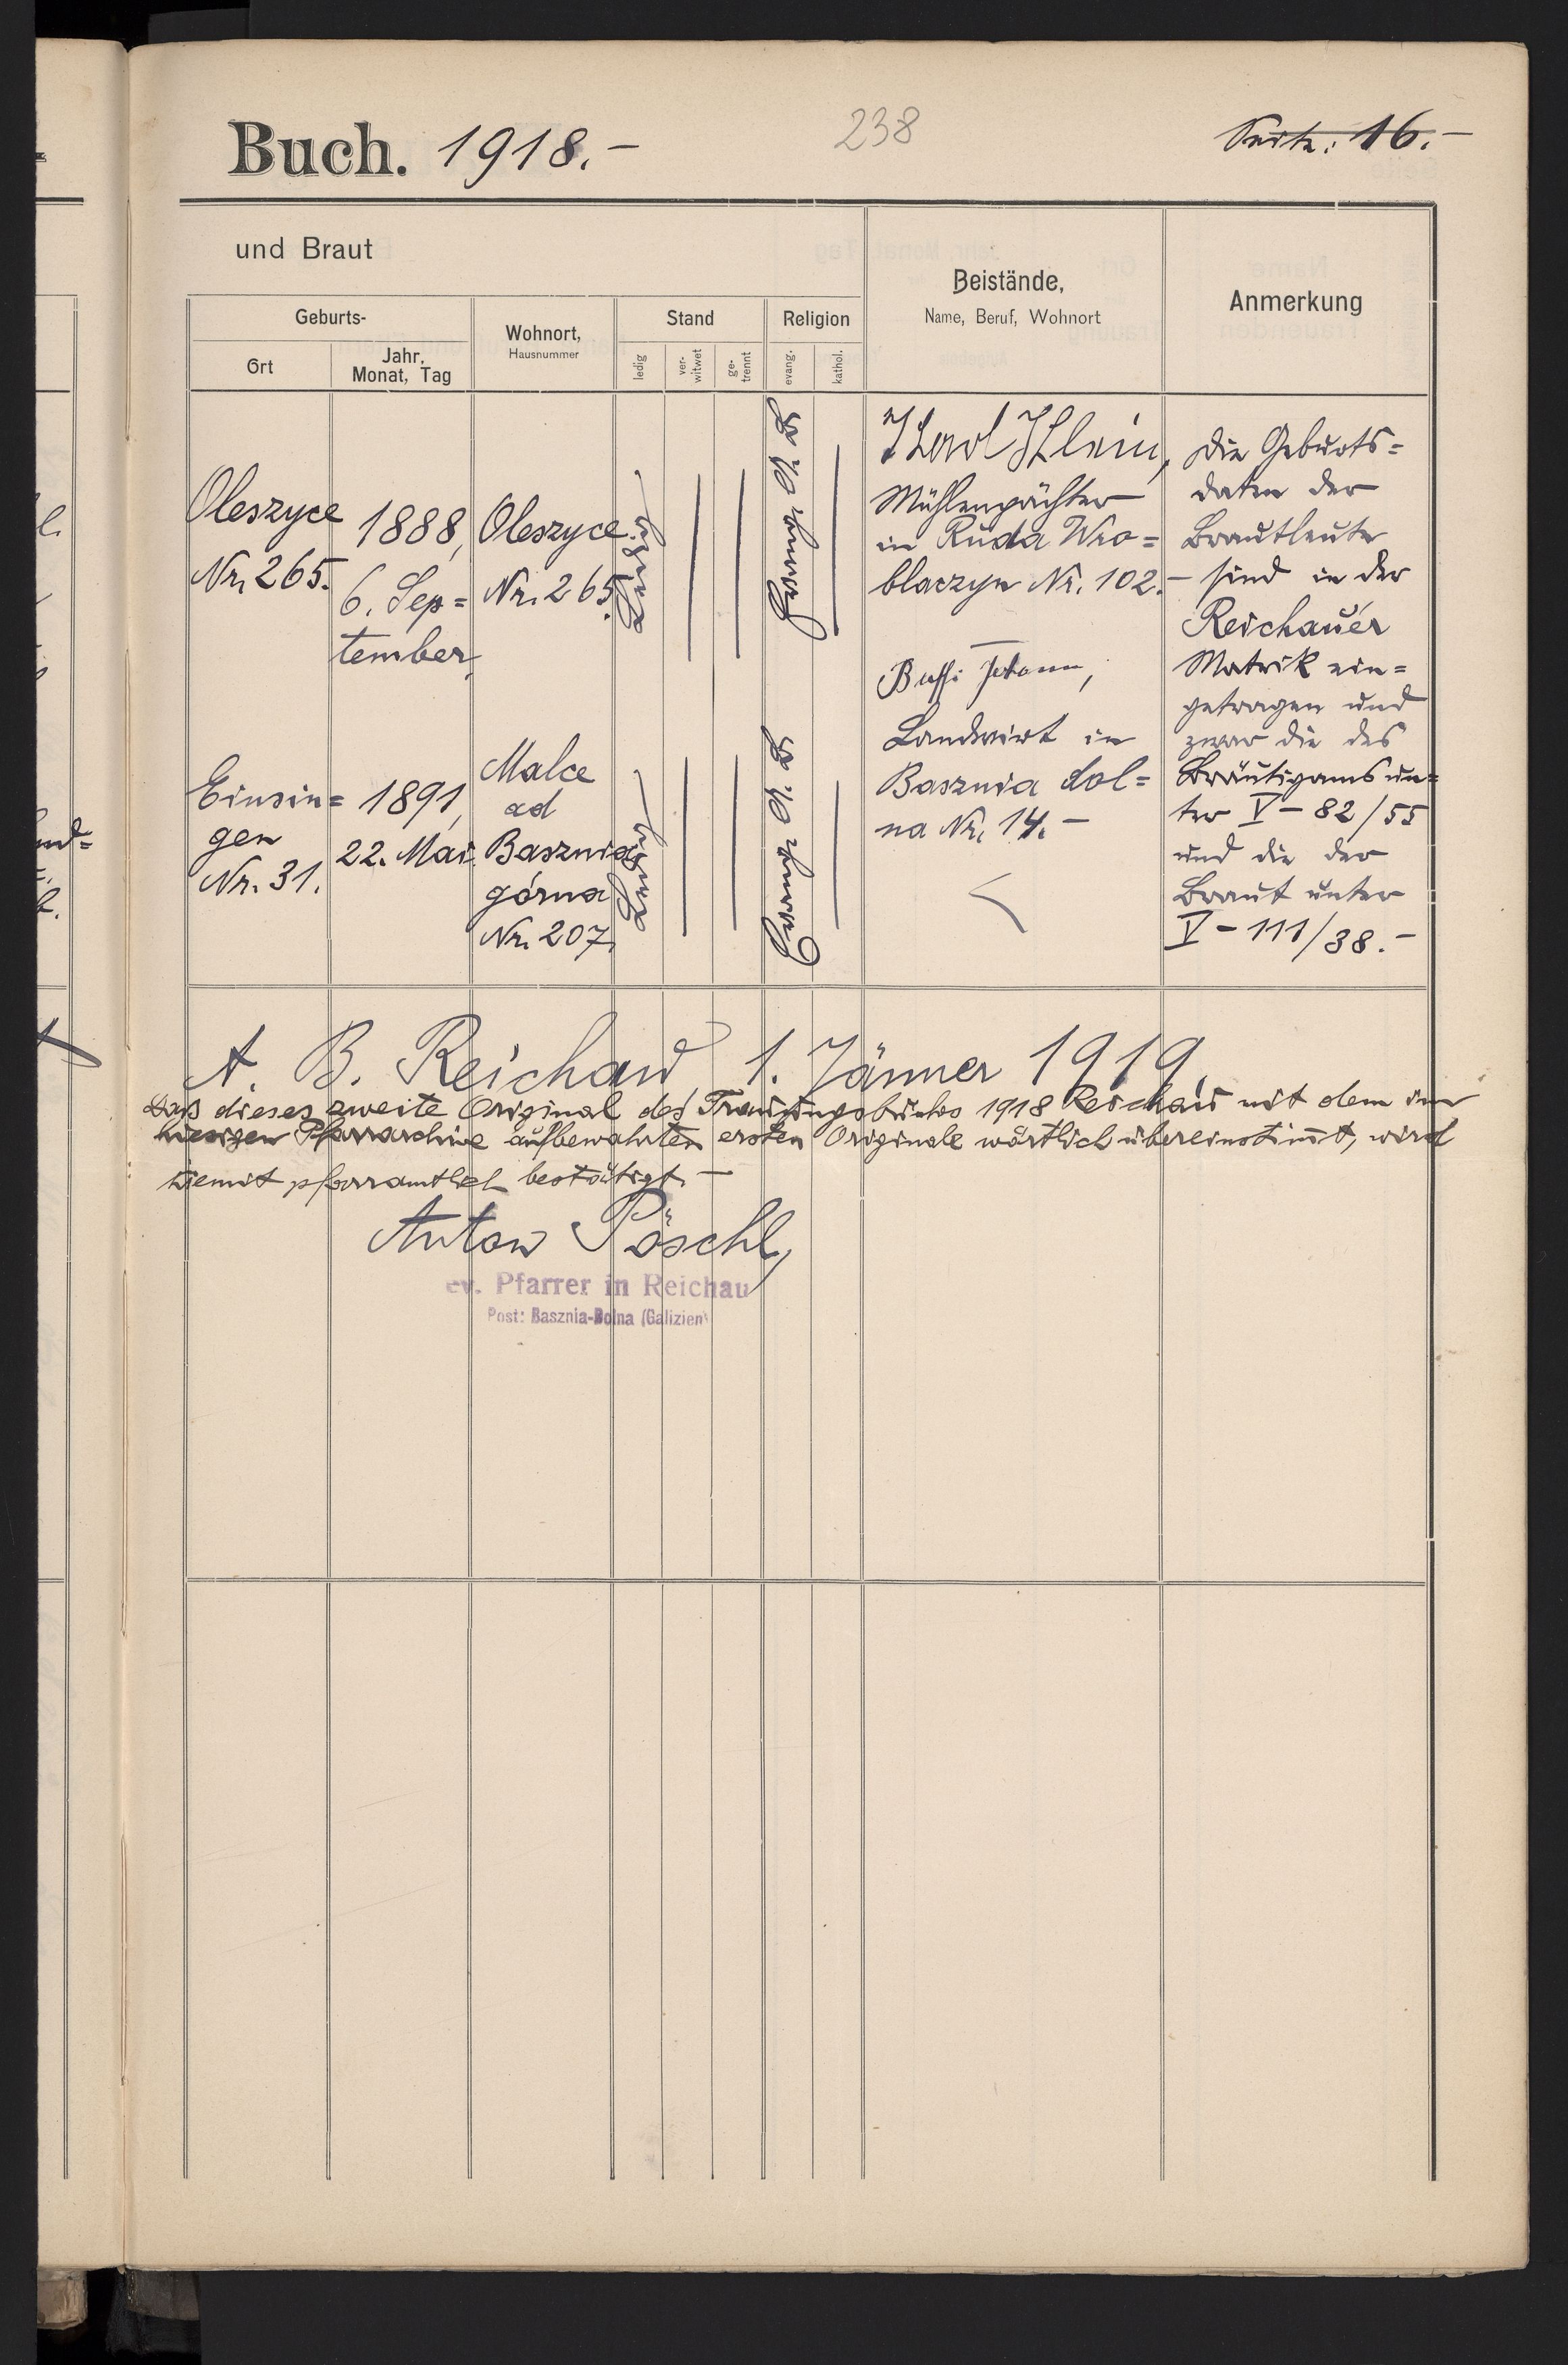 Buch. 1918.-
238
Seite: 16.-
und Braut
Geburts-
Ort
Jahr,
Monat, Tag
Wohnort,
Hausnummer
Stand
ledig
ver-
witwet
ge-
trennt
Religion
evang.
kathol.
Beistände,
Name, Beruf, Wohnort
Anmerkung
Oleszyce
Nr. 265.
1888,
6. Sep=
tember,
Oleszyce
Nr. 265.
ledig
evang. A. B.
Karl Klein,
Mühlenpächter
in Ruda Wro=
blaczyn Nr. 102.-
Buffi Johann,
Landwirt in
Basznia dol=
na Nr. 14.-
Die Geburts=
daten der
Brautleute
sind in der
Reichauer
Matrik ein=
getragen und
zwar die des
Bräutigams un=
ter V - 82/55
und die der
Braut unter
V - 111/38.-
Einsin=
gen
Nr. 31.
1891,
22. Mai
Malce
ad
Basznia
górna
Nr. 207.
ledig
evang. A. B.
A. B. Reichau, 1. Jänner 1919.
Daß dieses zweite Original des Trauungsbuches 1918 Reichau mit dem im
hiesigen Pfarrarchive aufbewahrten ersten Originale wörtlich übereinstimmt, wird
hiemit pfarramtlich bestätigt.-
Anton Pöschl,
ev. Pfarrer in Reichau
Post: Basznia-Dolna (Galizien)